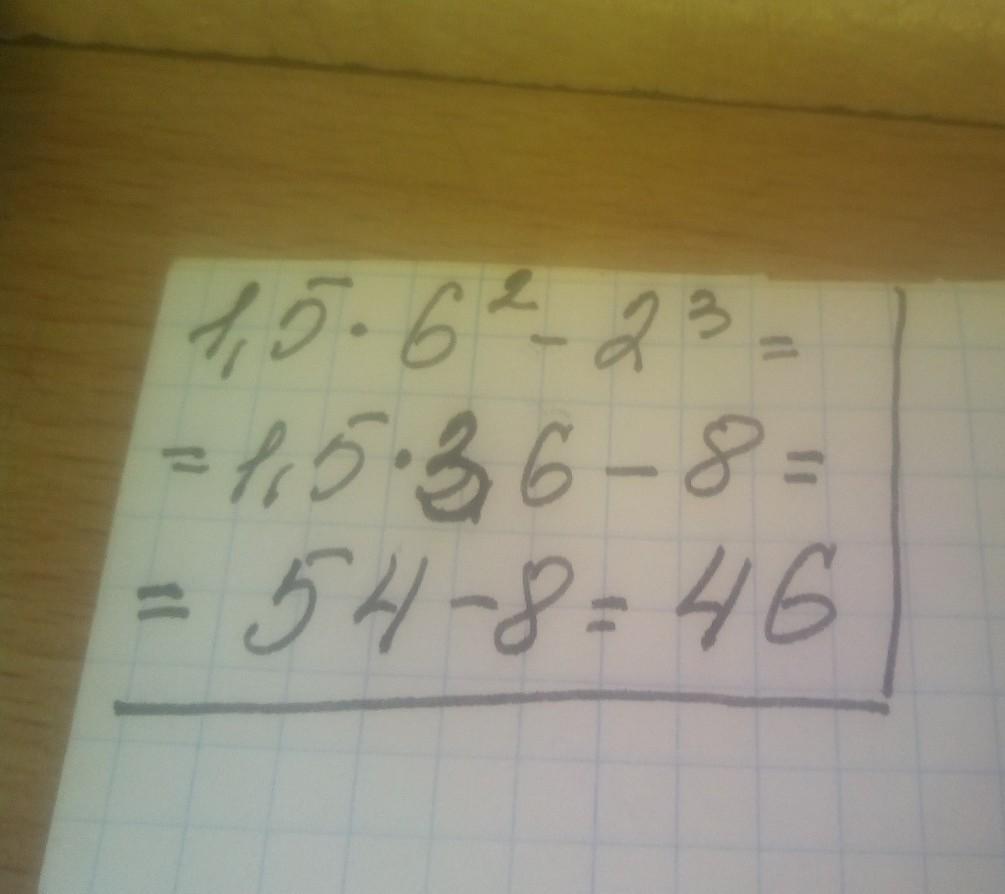 1,5 · 6² - 2³ =
= 1,5 · 36 - 8 =
= 54 - 8 = 46